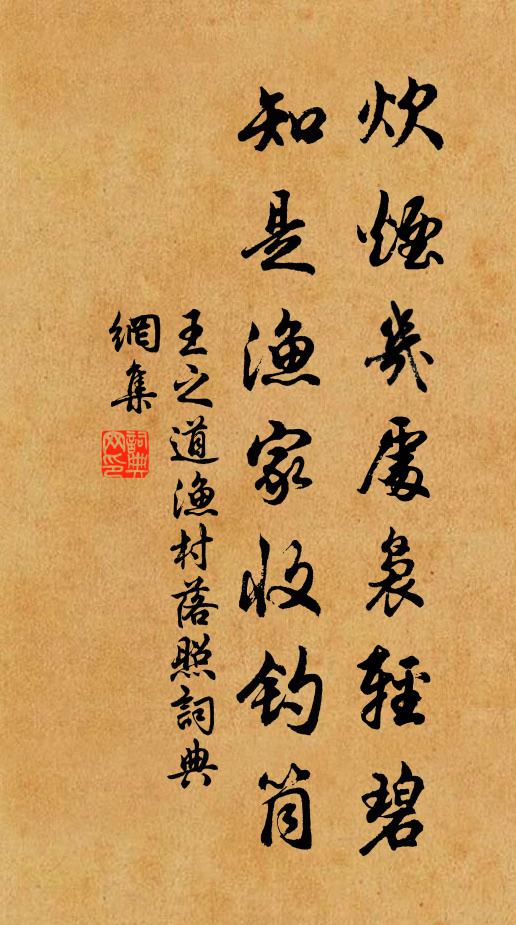 炊煙幾處裊輕碧
知是漁家收釣筒
王之道漁村落照詞典
網集
詞典
网印